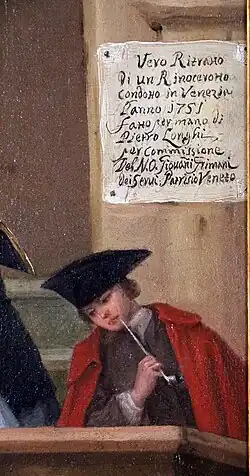 Vero Ritratto
Di un Rinocerotto
Condotto in Venezia
L'anno 1751
Fatto per mano di
Pietro Longhi
per Commissione
Del N.O. Giovani Grimani
dei Servi Patrizio Veneto